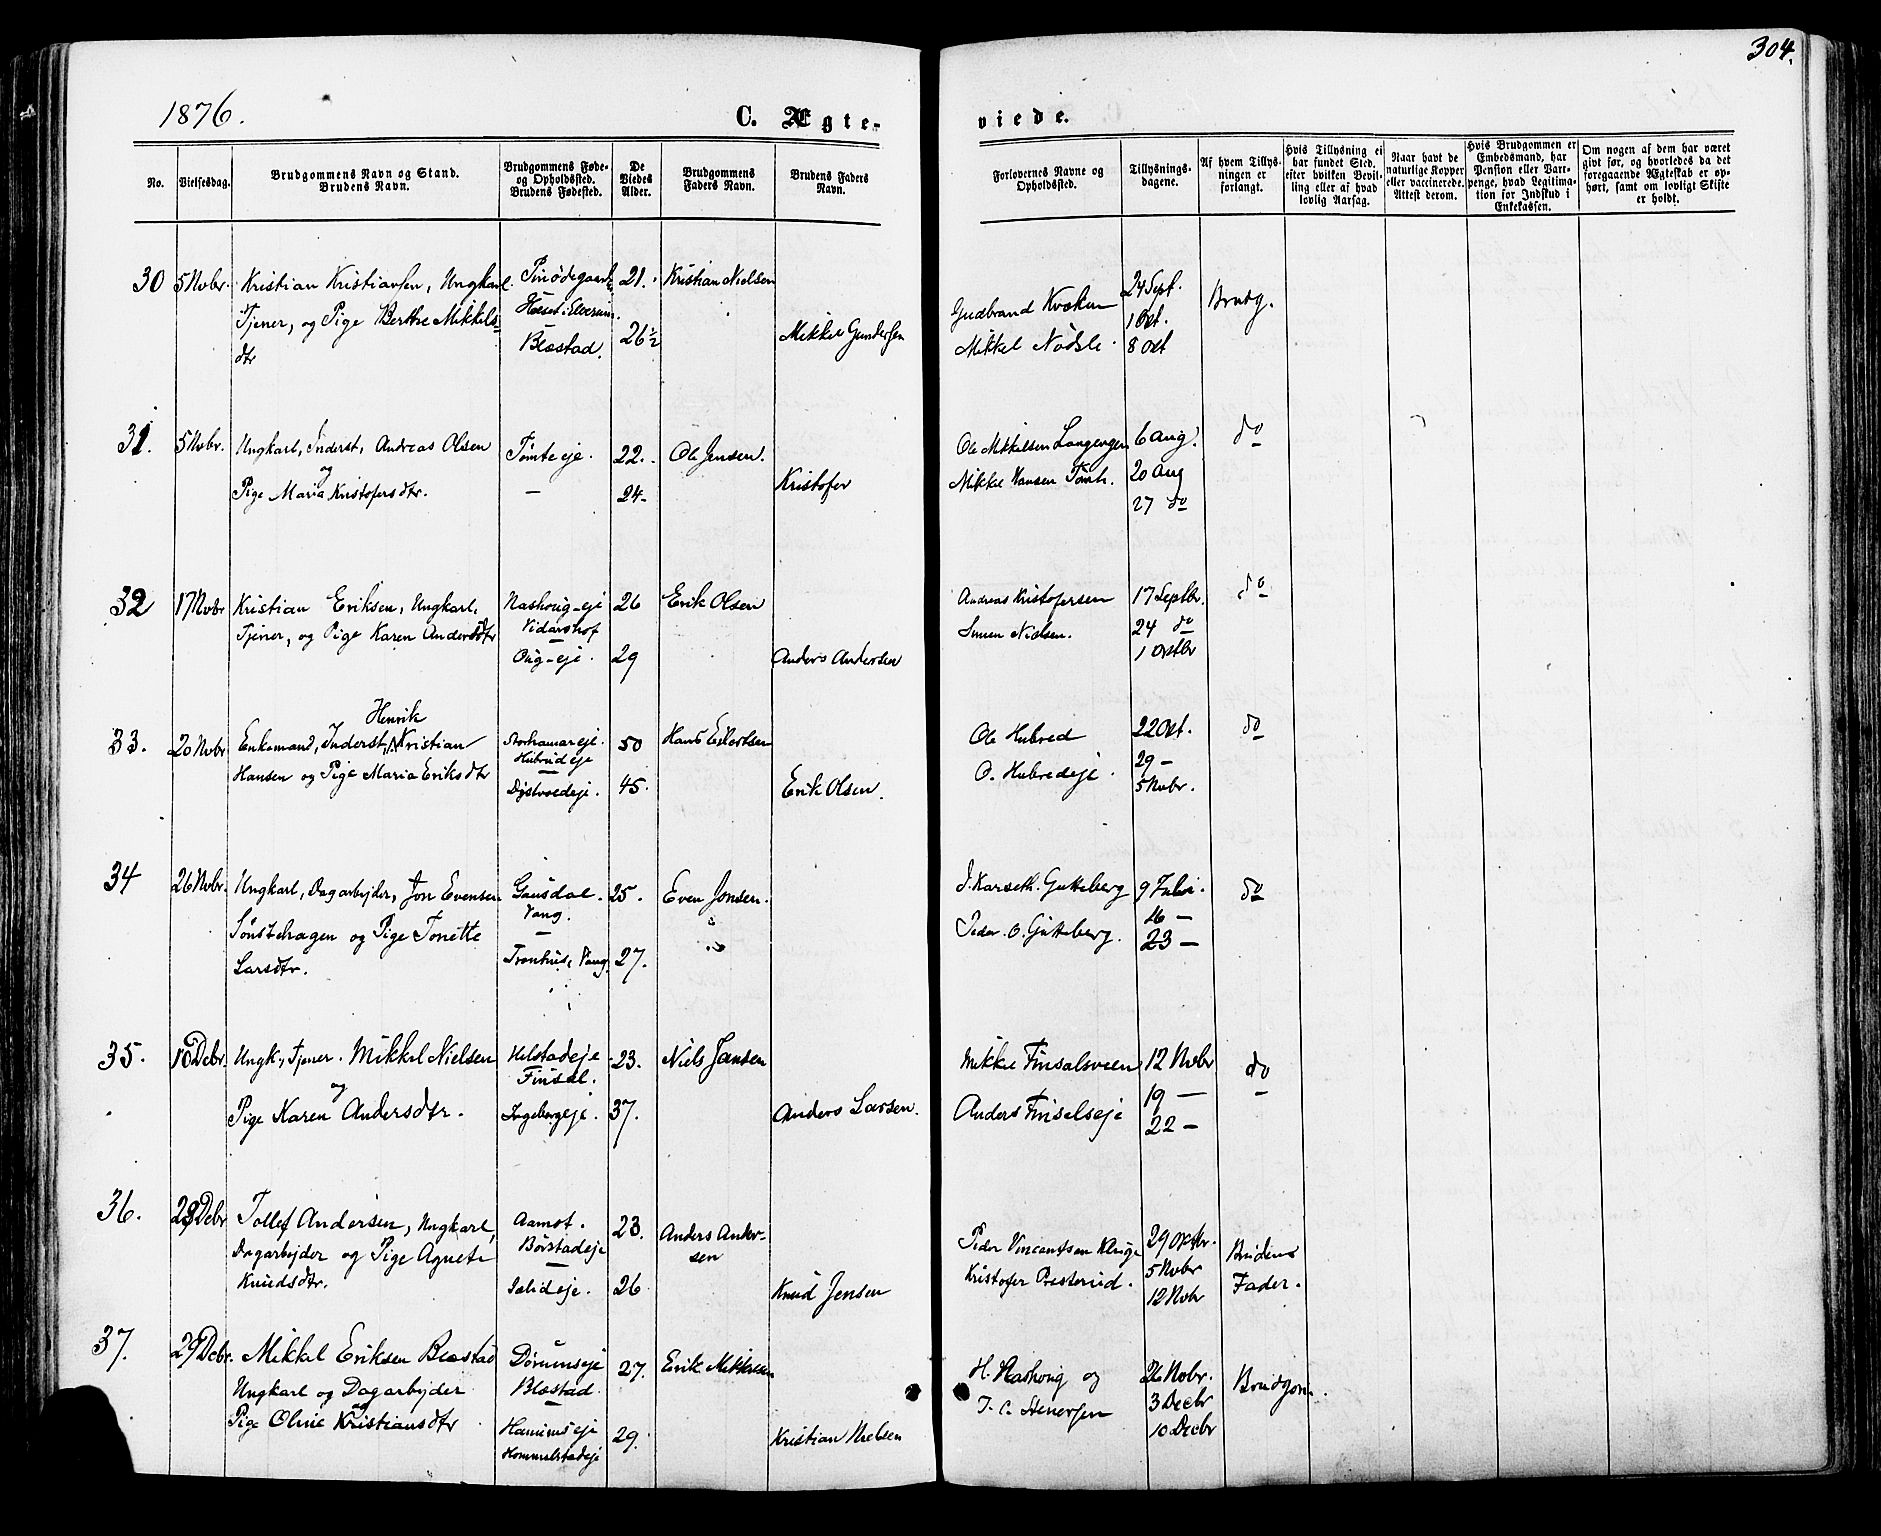 304.
1876.
C. Ægte-
viede.
No.
Vielsesdag.
Brudgommens Navn og Stand.
Brudens Navn.
Brudgommens Føde-
og Opholdssted.
Brudens Fødested.
De
Viedes
Alder.
Brudgommens
Faders Navn.
Brudens Faders
Navn.
Forlovernes Navne og
Opholdssted.
Tillysnings-
dagene.
Af hvem Tillys-
ningen er
forlangt.
Hvis Tillysning ei
har fundet Sted,
efter hvilken Bevil-
ling eller af hvad
lovlig Aarsag.
Naar havt de
naturlige Kopper
eller vaccinerede.
Attest derom.
Hvis Brudgommen er
Embedsmand, har
Pension eller Vart-
penge, hvad Legitima-
tion for Indskud i
Enkekassen.
Om nogen af dem har været
givt før, og hvorledes da det
foregaaende Ægteskab er op-
hørt, samt om lovligt Skifte
er holdt.
30
5 Novbr.
Kristian Kristiansen, Ungkarl.
Tjener, og Pige Berthe Mikkels-
dtr
i Elverum.
Blæstad.
21.
26½
Kristian Nielsen
Mikkel Gundersen
Gudbrand Kvækem
Mikkel Nødsle.
24 Sept.
1 Oct.
8 Oct
Brudg.
31.
5 Novbr.
Ungkarl, Inderst, Andreas Olsen
og
Pige Maria Kristofersdtr.
Tomte eje.
—
22.
24-
Ole Jensen.
Kristofer
Ole Mikkelsen Langengen
Mikkel Hansen Tomt.
6 Aug.
20 Aug
27 do
do
32
17 Novbr
Kristian Eriksen, Ungkarl.
Tjener, og Pige Karen Andersdtr
Nashoug-eje
Vidarshof
—
Oug-eje.
26
29
Erik Olsen
Anders Andersen
Andreas Kristofersen
Simen Nielsen.
17 Septbr.
24 do
1 Octbr
do
33.
20 Novbr
Henrik
Enkemand, Inderst, Kristian
Hansen og Pige Maria Eriksdtr
Storhamareje.
Hubredeje
—
Dystvoldeje.
50
45.
Hans Eilertsen
Erik Olsen.
Ole Hubred
O. Hubredeje.
22 Oct.
29 -
5 Novbr.
do
34
26 Novbr.
Ungkarl, Dagarbejder, Jon Evensen
Sønstehagen og Pige Tonette
Larsdtr.
Gausdal.
Vang.
—
Tronhus, Vang.
25.
27.
Even Jonsen.
J. Karseth. Gutteberg
Peder. O. Gutteberg.
9 Juli.
16 —
23 —
do
35.
15 Debr
Ungk., Tjener. Mikkel Nielsen
og
Pige Karen Andersdtr.
Helstadeje
Finsal.
Ingebergeje.
23.
37.
Niels Jansen
Anders Larsen.
Mikkel Finsalsveen
Anders Finselseje
12 Novbr
19 —
22 —
do
36.
29 Debr
Tollef Andersen, Ungkarl,
Dagarbejder og Pige Agnete
Knudsdtr.
Aamot.
Børstadeje
—
Salideje.
23.
26
Anders Ander-
sen
Knud Jensen
Peder Vincentsen Kluge
Kristofer Presterud.
29 Octbr.
5 Novbr
12 Novbr
Brudens
Fader.
37.
29 Debr.
Mikkel Eriksen Blæstad
Ungkarl og Dagarbejder
og
Pige Oline Kristiansdtr
Dørumseje
Blæstad.
—
Hommelstadeje
27.
29.
Erik Mikkelsen
Kristian Nielsen
H. Nashoug og
J. C. Stenersen
26 Novbr.
3 Decbr
10 Decbr
Brudgom.